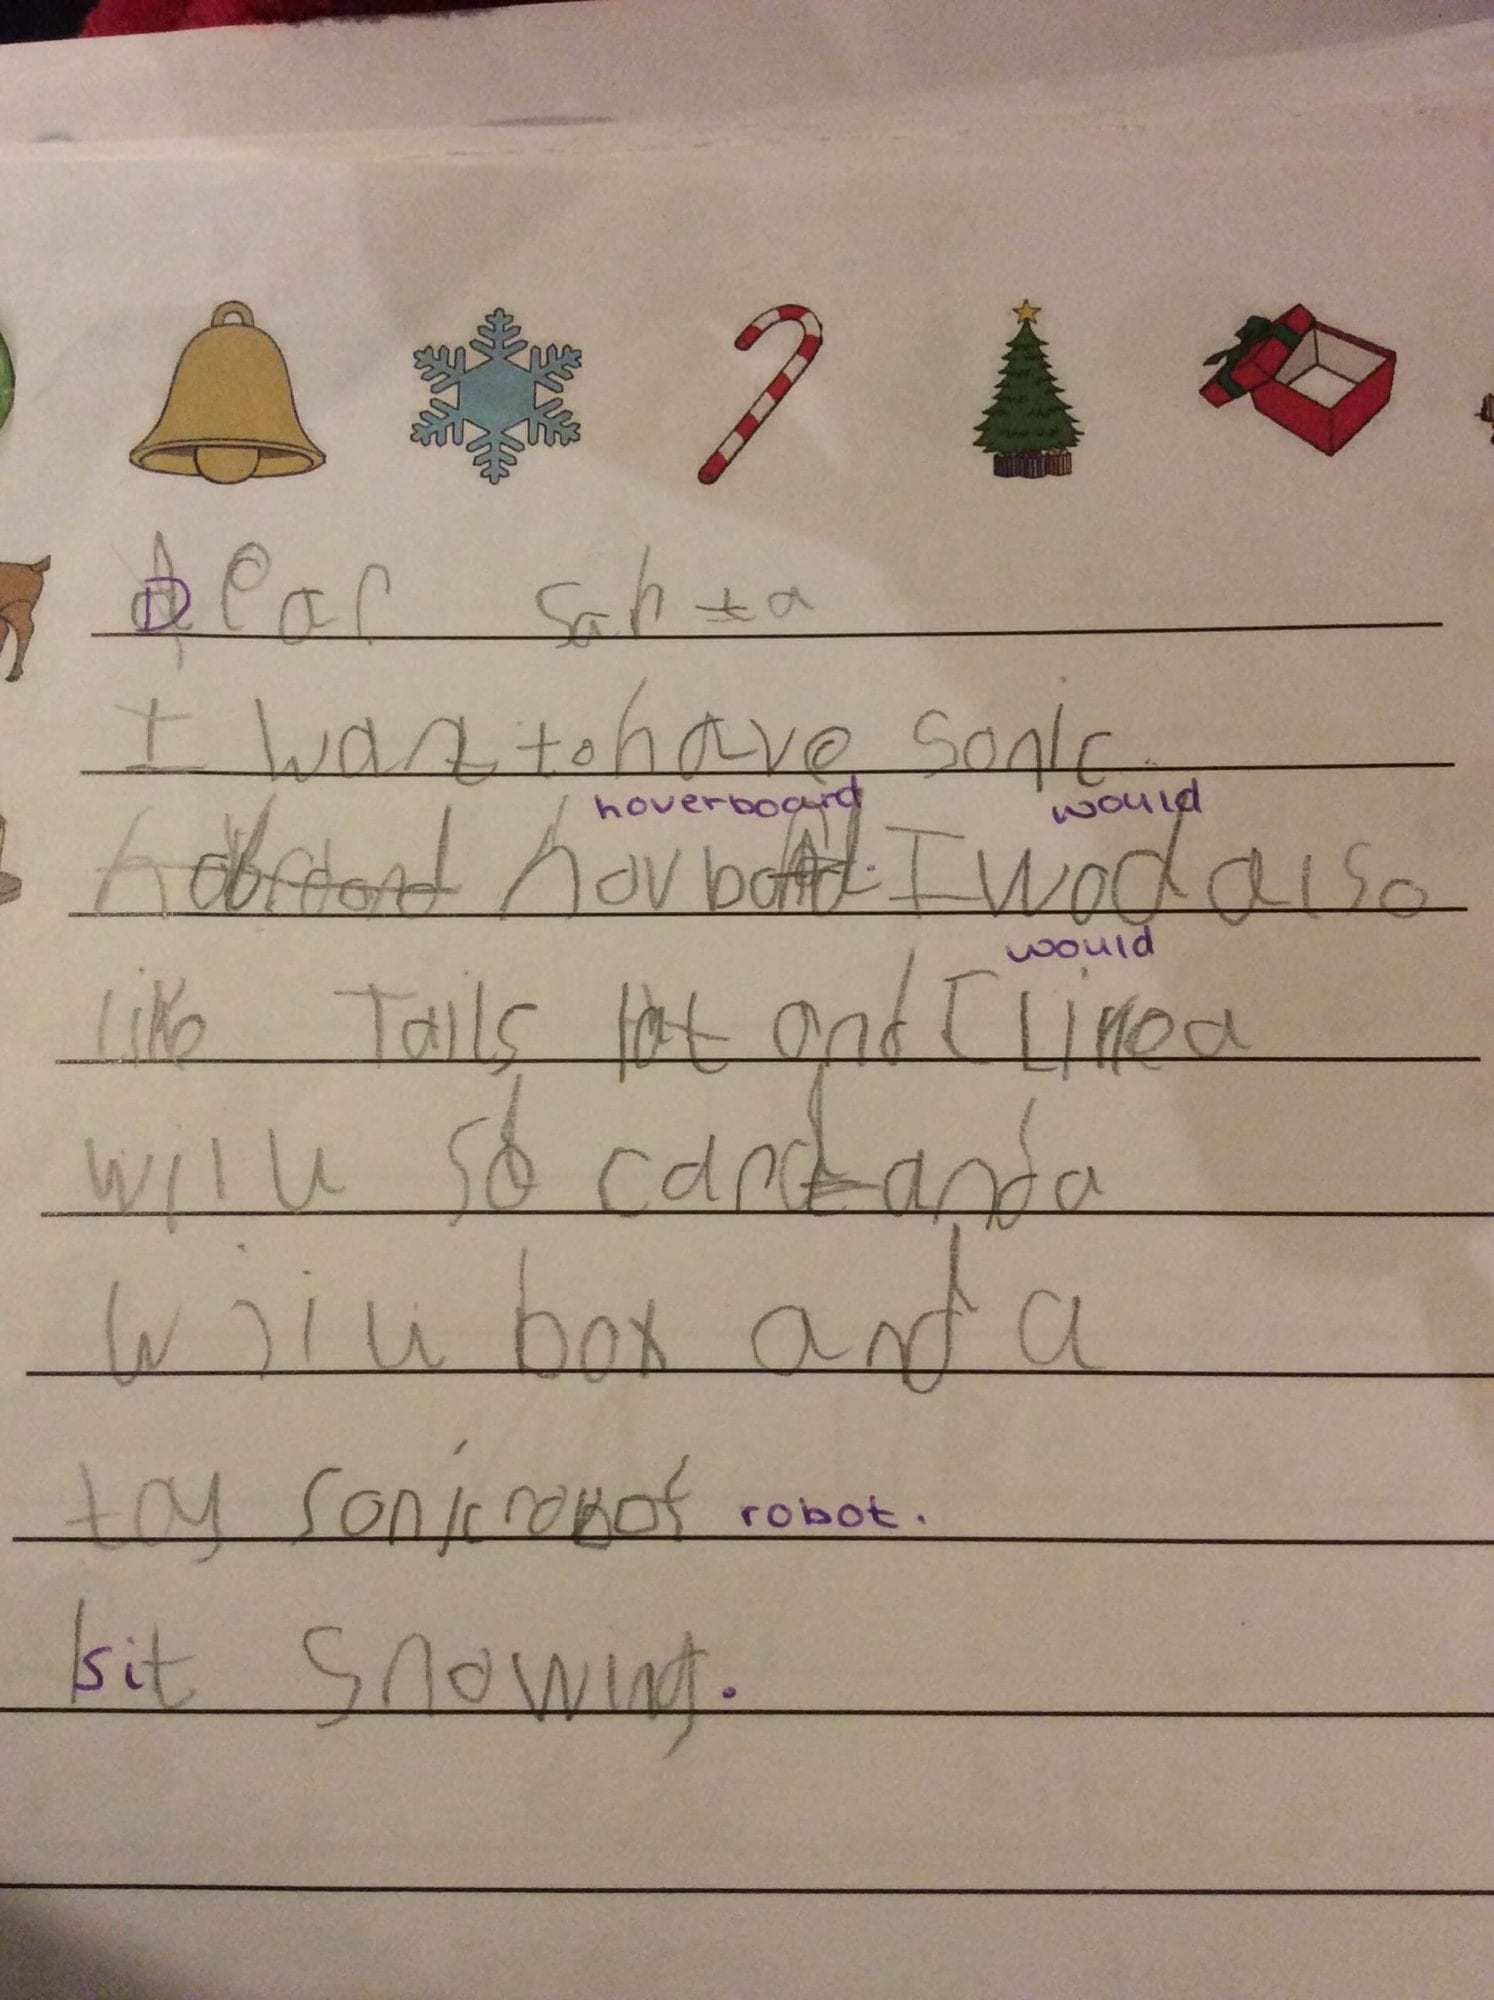 Dear santa
I want to have Sonic.
hoverboard would
hovbord. I wod also
would
like Tails hat and I Like a
wiiu sd card and a
wiiu box and a
toy sonic robot robot.
sit snowing.